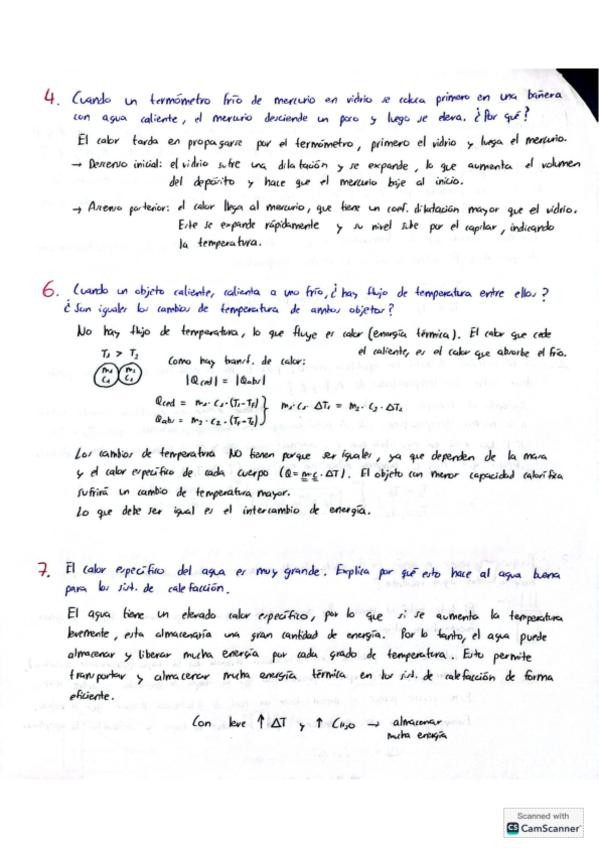 4. Cuando un termómetro frío de mercurio en vidrio se coloca primero en una bañera
con agua caliente, el mercurio desciende un poco y luego se eleva. ¿Por qué?
El calor tarda en propagarse por el termómetro, primero el vidrio y luego el mercurio.
→ Descenso inicial: el vidrio sufre una dilatación y se expande, lo que aumenta el volumen
del depósito y hace que el mercurio baje al inicio.
→ Ascenso posterior: el calor llega al mercurio, que tiene un coef. dilatación mayor que el vidrio.
Este se expande rápidamente y su nivel sube por el capilar, indicando
la temperatura.
6. Cuando un objeto caliente, calienta a uno frío, ¿hay flujo de temperatura entre ellos?
¿Son iguales los cambios de temperatura de ambos objetos?
No hay flujo de temperatura, lo que fluye es calor (energía térmica). El calor que cede
el caliente, es el calor que absorbe el frío.
T₁ > T₂
m₁ m₂
C₁ C₂
Como hay transf. de calor:
|Qced| = |Qabs|
Qced = m₁·C₁·(T₁-Tf)
Qabs = m₂·C₂·(Tf-T₂)
m₁·C₁·ΔT₁ = m₂·C₂·ΔT₂
Los cambios de temperatura NO tienen porque ser iguales, ya que dependen de la masa
y el calor específico de cada cuerpo (Q=m·c·ΔT). El objeto con menor capacidad calorífica
sufrirá un cambio de temperatura mayor.
Lo que debe ser igual es el intercambio de energía.
7. El calor específico del agua es muy grande. Explica por qué esto hace al agua buena
para los sist. de calefacción.
El agua tiene un elevado calor específico, por lo que si se aumenta la temperatura
levemente, esta almacenaría una gran cantidad de energía. Por lo tanto, el agua puede
almacenar y liberar mucha energía por cada grado de temperatura. Esto permite
transportar y almacenar mucha energía térmica en los sist. de calefacción de forma
eficiente.
Con leve ↑ ΔT y ↑ CH₂O → almacenar
mucha energía
Scanned with
CS CamScanner